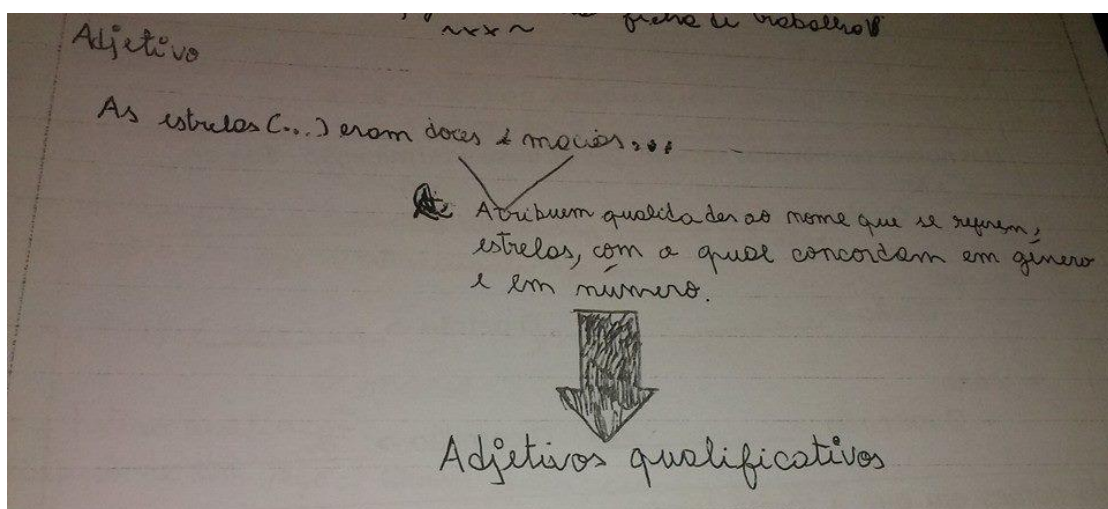 ficha de trabalho
Adjetivo
As estrelas (...) eram doces e macias...
Atribuem qualidades ao nome que se referem,
estrelas, com a qual concordam em género
e em número.
Adjetivos qualificativos